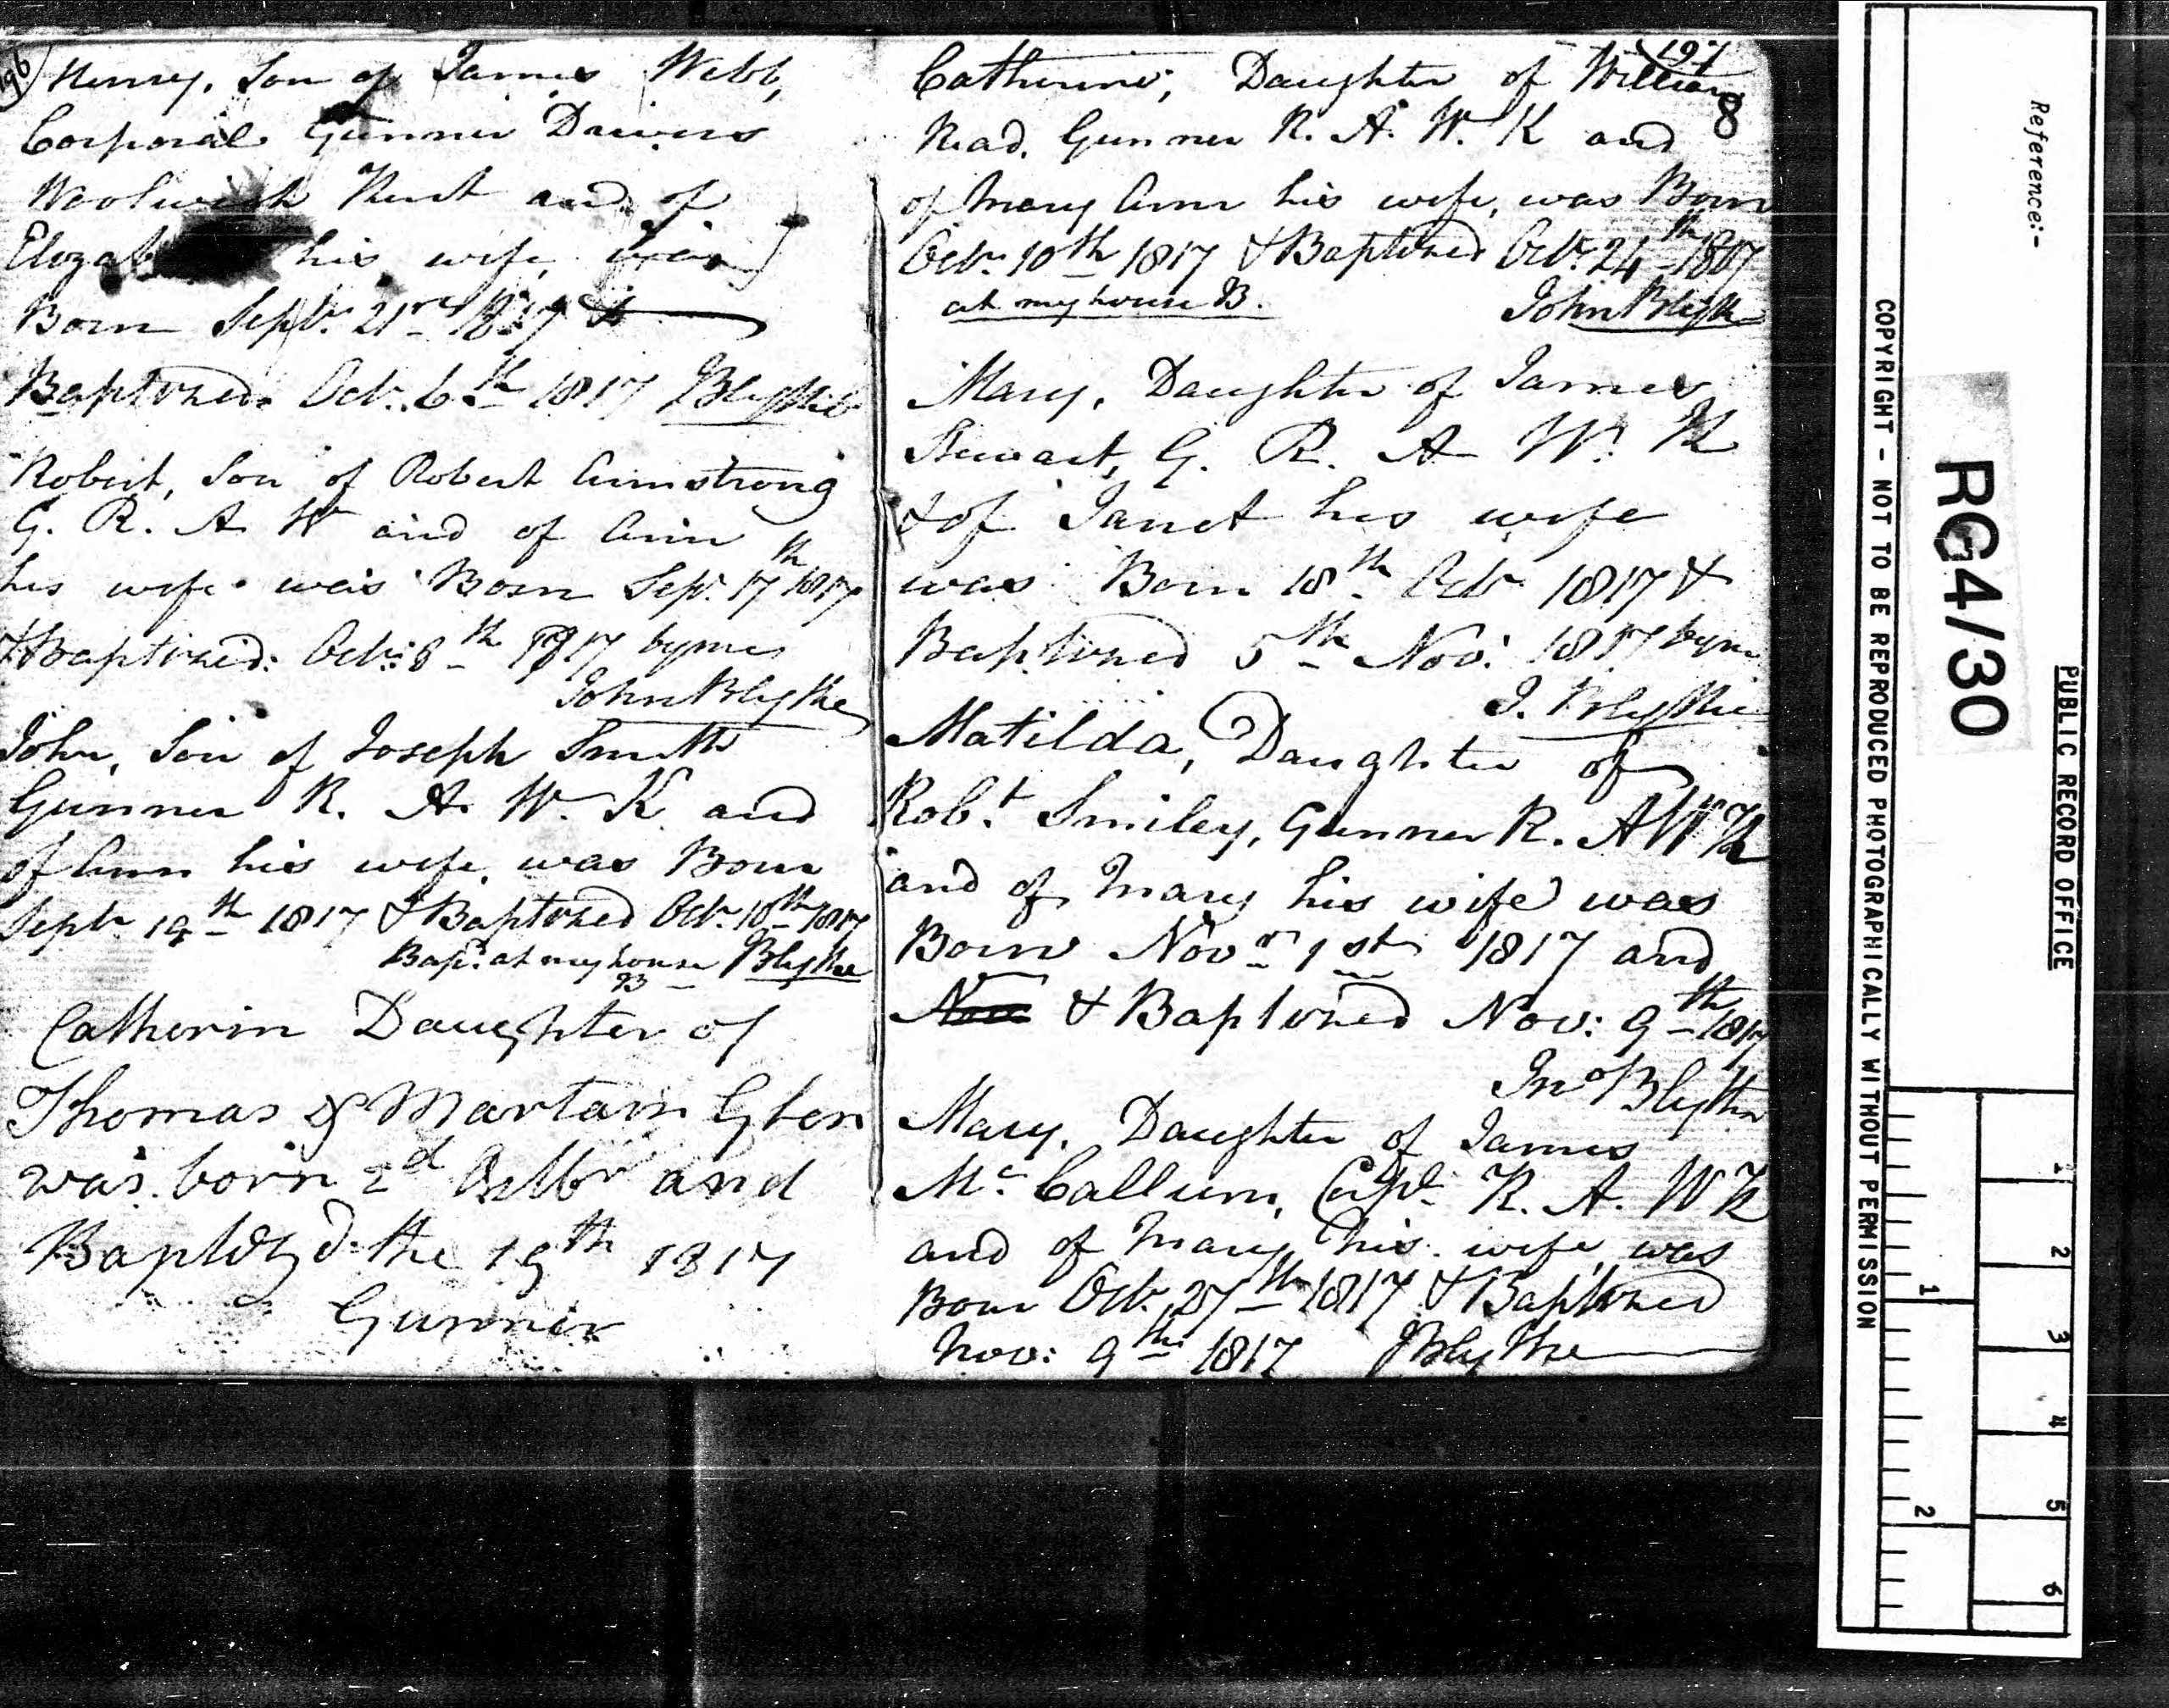 196
Henry, Son of James Webb,
Corporal Gunner Drivers
Woolwich Kent and of
Elizab his wife, was
Born Septr. 21st 1817 &
Baptized Octr. 6th 1817 JBlythe
Robert, Son of Robert Armstrong
G. R. A W and of Ann
his wife was Born Sepr. 17th 1817
& Baptized: Octr. 8th 1817 by me
John Blythe
John, Son of Joseph Smith
Gunner R. A. W. K and
of Ann his wife, was Born
Septr 19th 1817 & Baptized Octr. 10th 1817
Bapd. at my house Blythe
B
Catherin Daughter of
Thomas & Martain Glen
was born 2d Octbr and
Baptizd the 19th 1817
Gunner
197
8
Catherine, Daughter of William
Read, Gunner R. A. W. K and
of Mary Ann his wife, was Born
Octr. 10th 1817 & Baptized Octr. 24th 1817
at my house B. John Blythe
Mary, Daughter of James
Stewart, G. R. A W. K
& of Janet his wife
was Born 18th Octr 1817 &
Baptized 5th Nov. 1817 by me
J. Blythe
Matilda, Daughter of
Robt. Smiley, Gunner R. A W K
and of Mary his wife was
Born Novr 1st 1817 and
& Baptized Nov: 9th 1817
Jno Blythe
Mary, Daughter of James
Mc Callum, Corpl. R. A. W K
and of Mary his wife, was
Born Octr. 27th 1817 & Baptized
Nov: 9th 1817 JBlythe
PUBLIC RECORD OFFICE
Reference:-
RG4/30
COPYRIGHT - NOT TO BE REPRODUCED PHOTOGRAPHICALLY WITHOUT PERMISSION
1
2
3
4
5
6
1
2